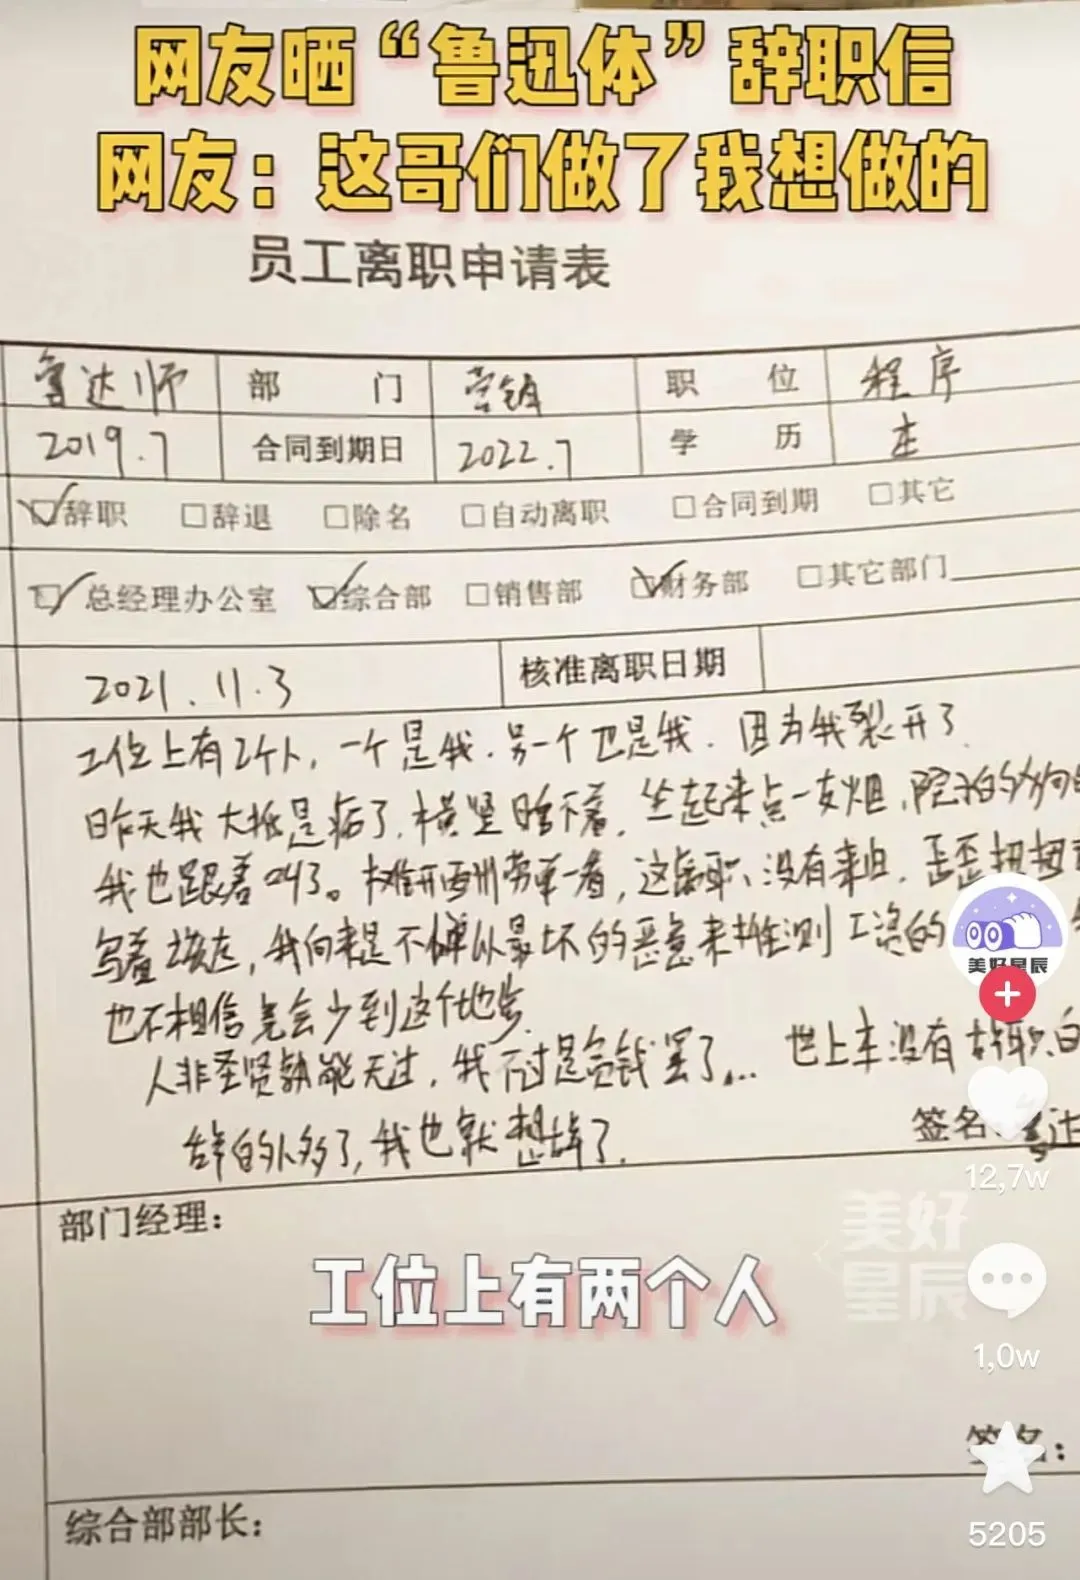 网友晒“鲁迅体”辞职信
网友：这哥们做了我想做的
员工离职申请表
鲁达师 部门 营销 职位 程序
2019.7 合同到期日 2022.7 学历
辞职 □辞退 □除名 □自动离职 □合同到期 □其它
总经理办公室 综合部 □销售部 财务部 □其它部门
2021.11.3 核准离职日期
工位上有2个人，一个是我.另一个也是我.因为我裂开了.
昨天我大抵是病了，横竖睡不着，坐起来点一支烟，院子的狗
我也跟着叫了。摊开一看，这离职没有来由，歪歪扭扭
写着，我向来是不惮以最坏的恶意来推测工资的
也不相信竟会少到这个地步.
人非圣贤孰能无过，我不过是贪钱罢了... 世上本没有辞职
辞的人多了，我也就想辞了.
签名
部门经理：
工位上有两个人
签名：
综合部部长：
美好星辰
12.7w
美好
星辰
1.0w
5205